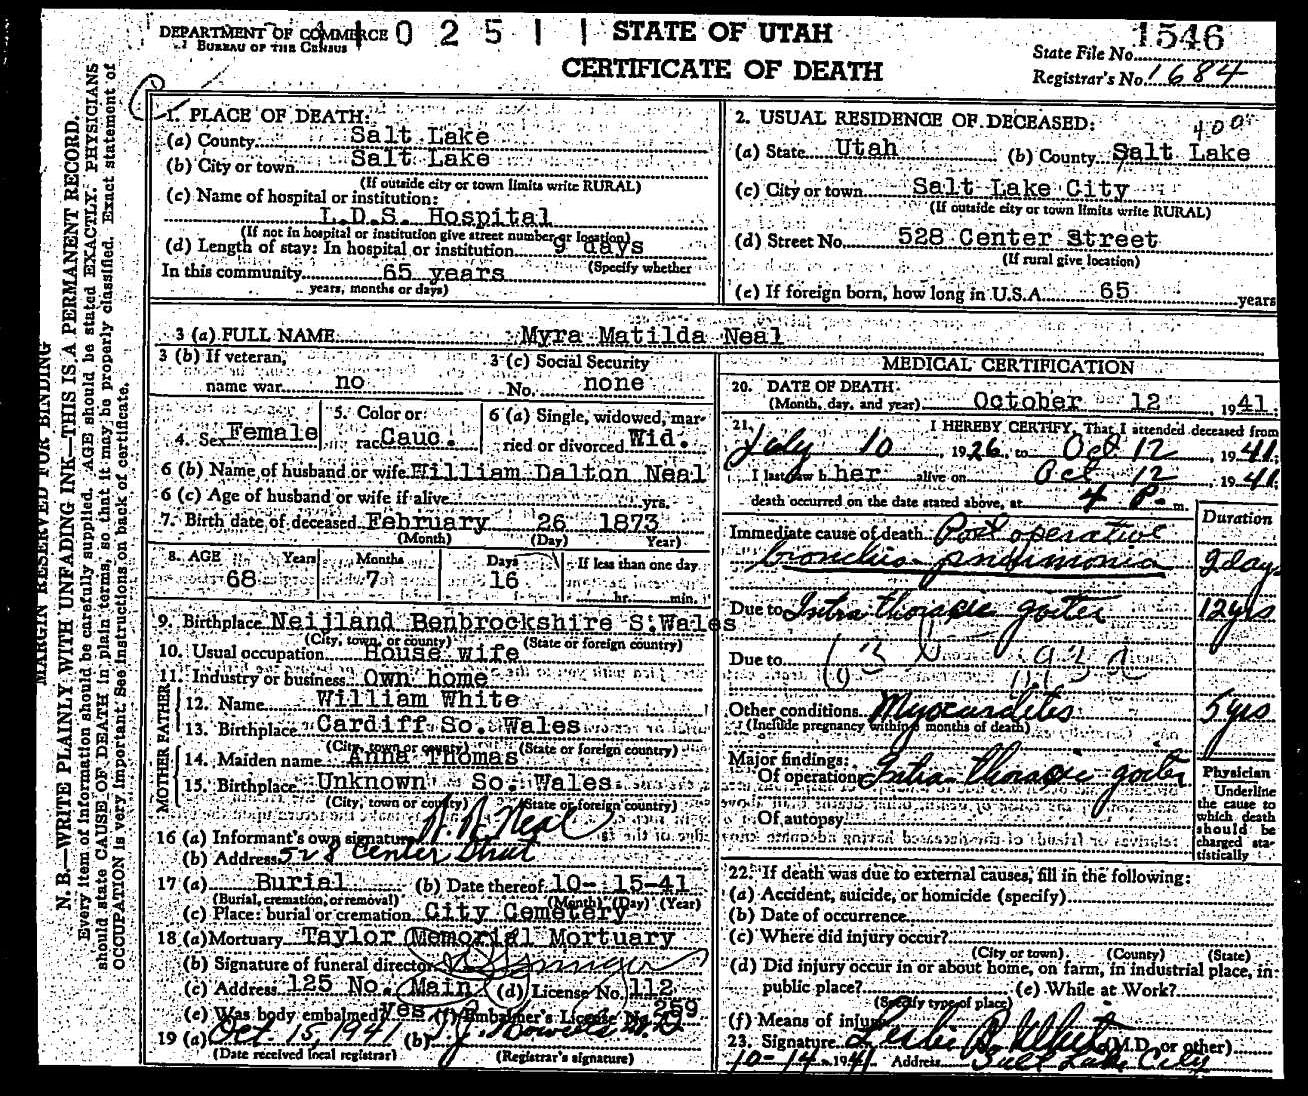 DEPARTMENT OF COMMERCE
BUREAU OF THE CENSUS
0 2 5 1 1
STATE OF UTAH
CERTIFICATE OF DEATH
1546
State File No.
Registrar's No. 1684
MARGIN RESERVED FOR BINDING
N. B.—WRITE PLAINLY WITH UNFADING INK—THIS IS A PERMANENT RECORD.
Every item of information should be carefully supplied. AGE should be stated EXACTLY. PHYSICIANS
should state CAUSE OF DEATH in plain terms, so that it may be properly classified. Exact statement of
OCCUPATION is very important. See instructions on back of certificate.
1. PLACE OF DEATH:
(a) County Salt Lake
(b) City or town Salt Lake
(If outside city or town limits write RURAL)
(c) Name of hospital or institution:
L.D.S. Hospital
(If not in hospital or institution give street number or location)
(d) Length of stay: In hospital or institution 9 days
(Specify whether
In this community 65 years
years, months or days)
2. USUAL RESIDENCE OF DECEASED:
400
(a) State Utah (b) County Salt Lake
(c) City or town Salt Lake City
(If outside city or town limits write RURAL)
(d) Street No. 528 Center Street
(If rural give location)
(e) If foreign born, how long in U.S.A. 65 years
3 (a) FULL NAME Myra Matilda Neal
3 (b) If veteran,
name war no
3 (c) Social Security
No. none
4. Sex Female
5. Color or
race Cauc.
6 (a) Single, widowed, mar-
ried or divorced Wid.
6 (b) Name of husband or wife William Dalton Neal
6 (c) Age of husband or wife if alive yrs.
7. Birth date of deceased February 26 1873
(Month) (Day) Year)
8. AGE Years Months Days If less than one day
68 7 16
hr. min.
9. Birthplace Neijland Benbrockshire S.Wales
(City, town, or county) (State or foreign country)
10. Usual occupation House wife
11. Industry or business Own home
FATHER
12. Name William White
13. Birthplace Cardiff So. Wales
(City, town or county) (State or foreign country)
MOTHER
14. Maiden name Anna Thomas
15. Birthplace Unknown So. Wales
(City, town or county) (State or foreign country)
16 (a) Informant's own signature Neal
(b) Address 528 Center Street
17 (a) Burial (b) Date thereof 10-15-41
(Burial, cremation, or removal) (Month) (Day) (Year)
(c) Place: burial or cremation City Cemetery
18 (a) Mortuary Taylor Memorial Mortuary
(b) Signature of funeral director
(c) Address 125 No. Main (d) License No. 112
(e) Was body embalmed? Yes (f) Embalmer's License No. 259
19 (a) Oct. 15, 1941 (b)
(Date received local registrar) (Registrar's signature)
MEDICAL CERTIFICATION
20. DATE OF DEATH
(Month, day, and year) October 12, 1941.
21. I HEREBY CERTIFY, That I attended deceased from
July 10, 1926, to Oct 12, 1941.
I last saw her alive on Oct 12, 1941
death occurred on the date stated above, at 4 P. m.
Duration
Immediate cause of death Post operative
broncho-pneumonia 9 days
Due to Intra thoracic goiter 12 yrs
Due to
Other conditions Myocarditis 5 yrs
(Include pregnancy within 3 months of death)
Major findings:
Of operation Intra-thoracic goiter
Of autopsy
Physician
Underline
the cause to
which death
should be
charged sta-
tistically
22. If death was due to external causes, fill in the following:
(a) Accident, suicide, or homicide (specify)
(b) Date of occurrence
(c) Where did injury occur?
(City or town) (County) (State)
(d) Did injury occur in or about home, on farm, in industrial place, in
public place? (e) While at Work?
(Specify type of place)
(f) Means of injury
23. Signature Leslie (M.D. or other)
10-14-1941 Address Salt Lake City